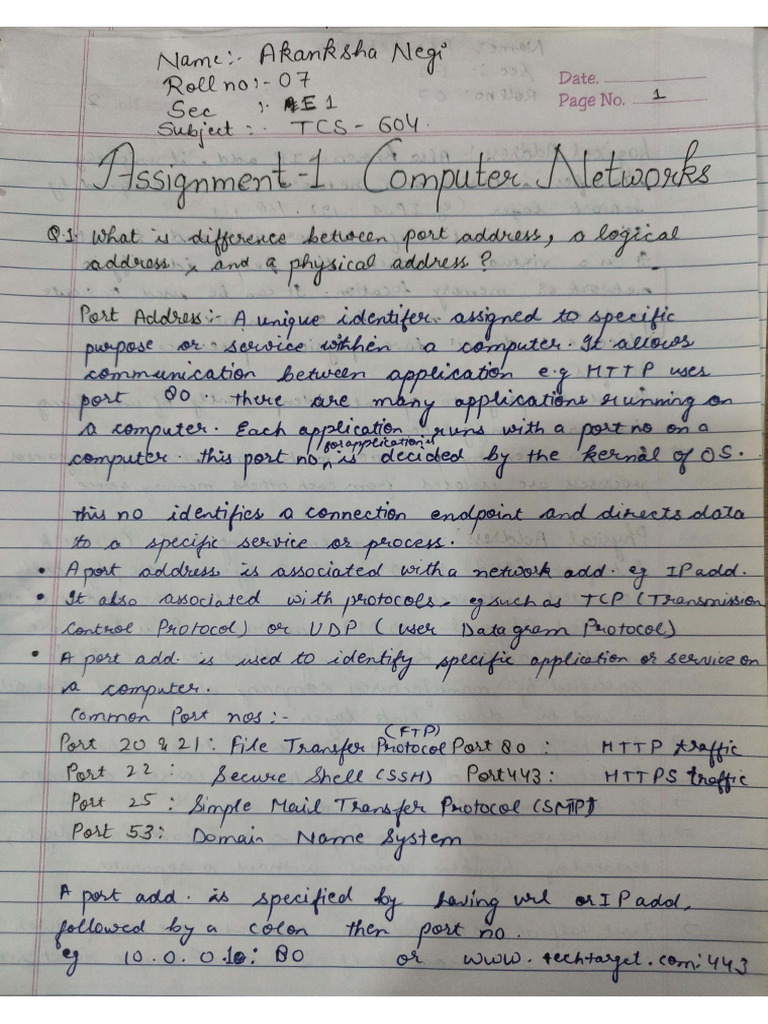 Name:- Akanksha Negi
Roll no:- 07
Date.
Sec :- E1
Page No. 1
Subject :- TCS - 604.
Assignment-1 Computer Networks
Q.1. What is difference between port address, a logical
address, and a physical address?
Port Address:- A unique identifer assigned to specific
purpose or service within a computer. It allows
communication between application e.g HTTP uses
port 80. There are many applications running on
a computer. Each application runs with a port no on a
for application is
computer. this port no is decided by the kernel of OS.
this no identifies a connection endpoint and directs data
to a specific service or process.
• A port address is associated with a network add. eg IP add.
• It also associated with protocols. eg such as TCP (Transmission
Control Protocol) or UDP (User Datagram Protocol)
• A port add. is used to identify specific application or service on
a computer.
Common Port nos:-
(FTP)
Port 20 & 21: File Transfer Protocol Port 80 : HTTP traffic
Port 22 : Secure Shell (SSH) Port 443: HTTPS traffic
Port 25 : Simple Mail Transfer Protocol (SMTP)
Port 53: Domain Name System
A port add. is specified by having url or IP add,
followed by a colon then port no.
eg 10.0.0.10: 80 or www.techtarget.com:443